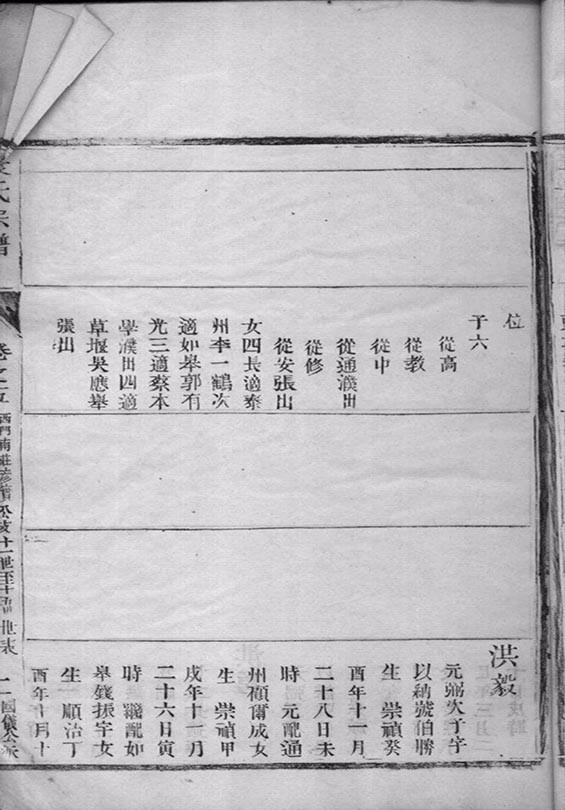 位
子六
從高
從教
從中
從通濮出
從修
從安張出
女四長適泰
州李一鶴次
適如皋郭有
光三適蔡本
學濮出四適
草堰吳應舉
張出
洪毅
元弼次子字
以納號伯勝
生 崇禎癸
酉年十一月
二十八日未
時 元配通
州碩爾成女
生 崇禎甲
戌年十一月
二十六日寅
時 繼配如
皋錢振宇女
生 順治丁
酉年十月十
氏宗譜
卷之五
世表